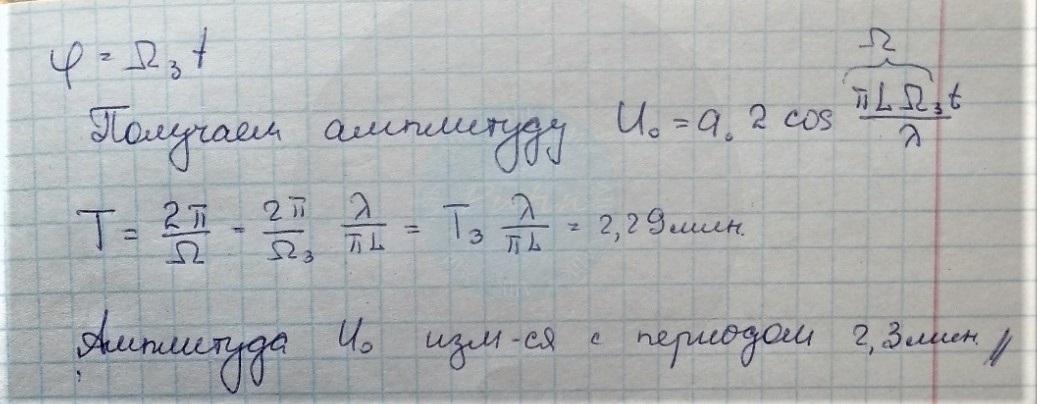 φ = Ω₃ t
Получаем амплитуду U₀ = a₀ 2 cos πLΩ₃t/λ
Ω
T = 2π/Ω = 2π/Ω₃ λ/πL = T₃ λ/πL = 2,29 мин.
Амплитуда U₀ изм-ся с периодом 2,3 мин. //